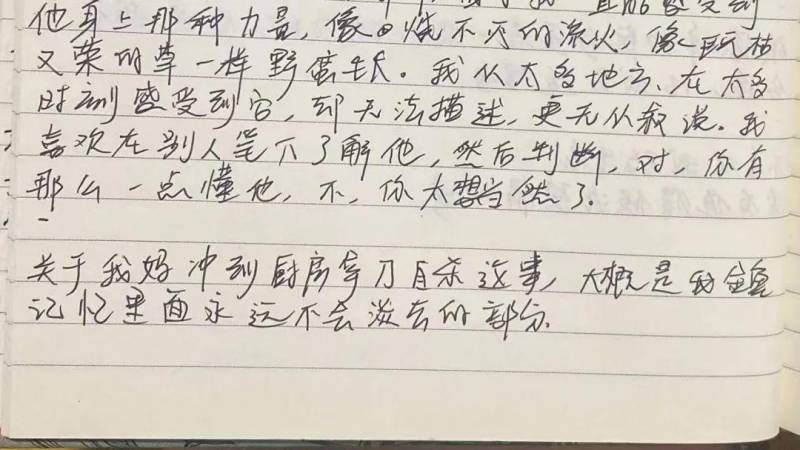 感受到
他身上那种力量，像日烧不灭的流火，像一玩枯
又荣的草一样野蛮生长。我从太多地方、在太多
时刻感受到它，却无法描述，更无从叙说。我
喜欢在别人笔下了解他，然后判断，对，你有
那么一点懂他，不，你太想当然了。
关于我妈冲到厨房拿刀自杀这事，大概是我
记忆里面永远不会淡去的部分。